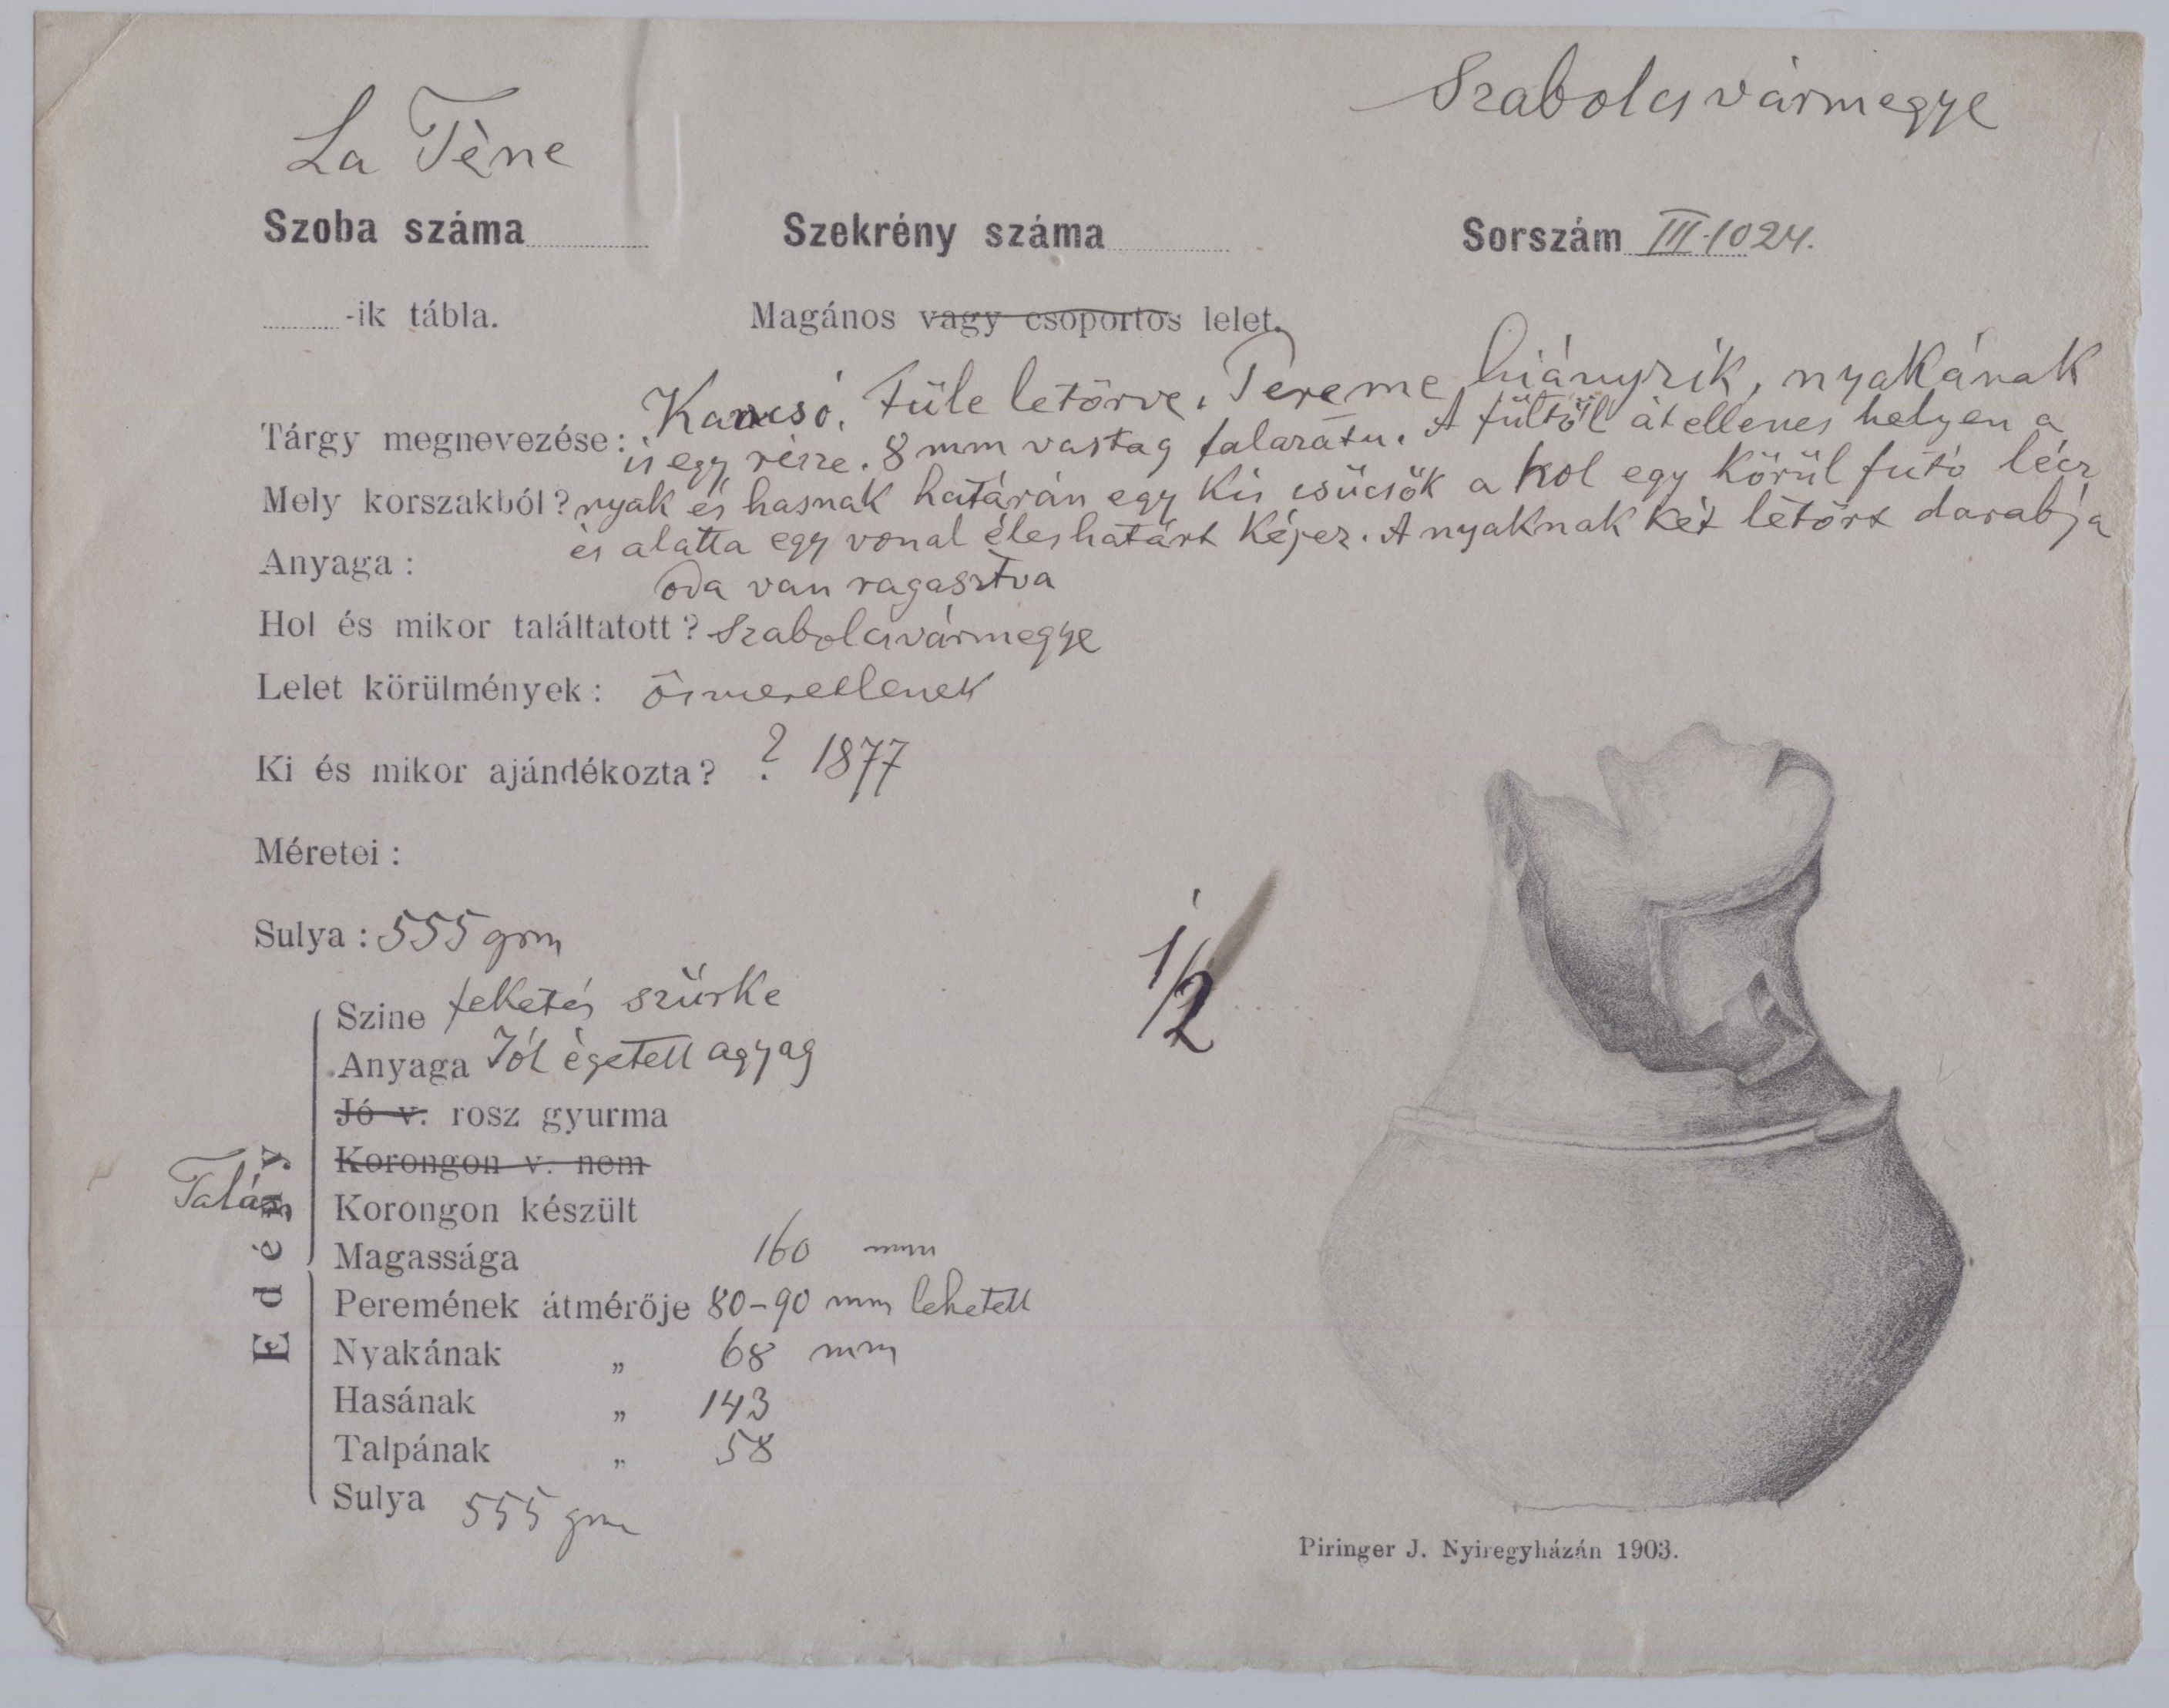 Szabolcsvármegye
La Tène
Szoba száma Szekrény száma Sorszám III.1024.
-ik tábla. Magános vagy csoportos lelet.
Kancsó. Füle letörve. Pereme hiányzik, nyakának
Tárgy megnevezése: is egy része. 8 mm vastag falazatu. A fültől átellenes helyen a
Mely korszakból? nyak és hasnak határán egy kis csücsök a hol egy körül futó lécz
és alatta egy vonal éles határt képez. A nyaknak két letört darabja
Anyaga:
oda van ragasztva
Hol és mikor találtatott? Szabolcsvármegye
Lelet körülmények: ösmeretlenek
Ki és mikor ajándékozta? ? 1877
Méretei:
Sulya: 555 grm
1/2
Edény
Szine feketés szürke
Anyaga Jól égetett agyag
Jó v. rosz gyurma
Korongon v. nem
Talán Korongon készült
Magassága 160 mm
Peremének átmérője 80-90 mm lehetett
Nyakának „ 68 mm
Hasának „ 143
Talpának „ 58
Sulya 555 grm
Piringer J. Nyiregyházán 1903.